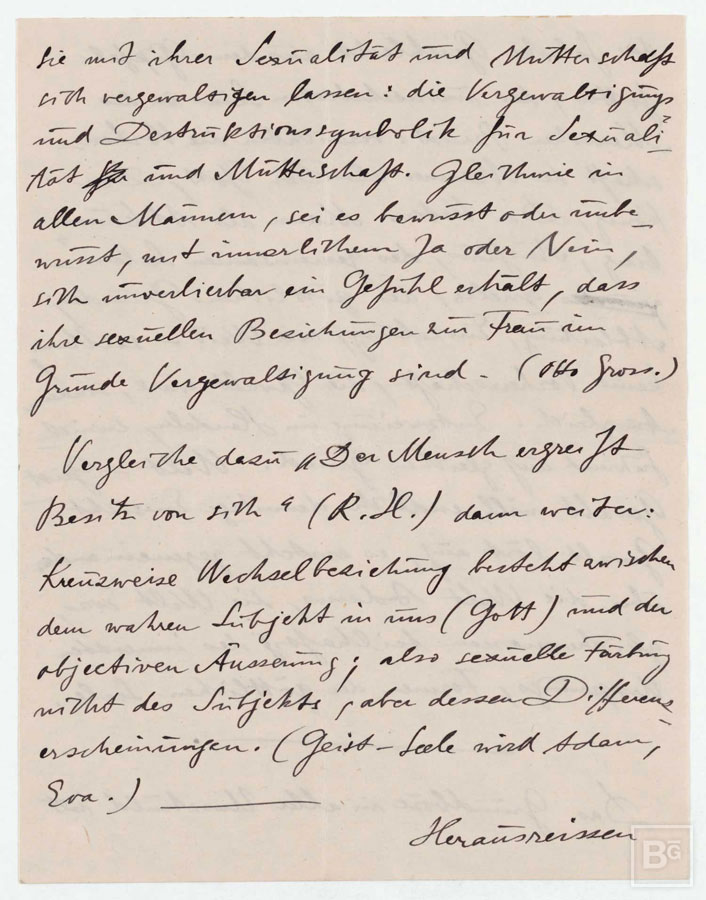 sie mit ihrer Sexualität und Mutterschaft
sich vergewaltigen lassen: die Vergewaltigungs
und Destruktionssymbolik für Sexuali-
tät und Mutterschaft. Gleichwie in
allen Männern, sei es bewusst oder unbe-
wusst, mit innerlichem Ja oder Nein,
sich unverlierbar ein Gefühl erhält, dass
ihre sexuellen Beziehungen zur Frau im
Grunde Vergewaltigung sind – (Otto Gross.)
Vergleiche dazu „Der Mensch ergreift
Besitz von sich“ (R.H.) dann weiter:
Kreuzweise Wechselbeziehung besteht zwischen
dem wahren Subjekt in uns (Gott) und der
objectiven Äusserung; also sexuelle Färbung
nicht des Subjekts, aber dessen Differenz-
erscheinungen. (Geist – Seele wird Adam,
Eva.)
Herausreissen
BG